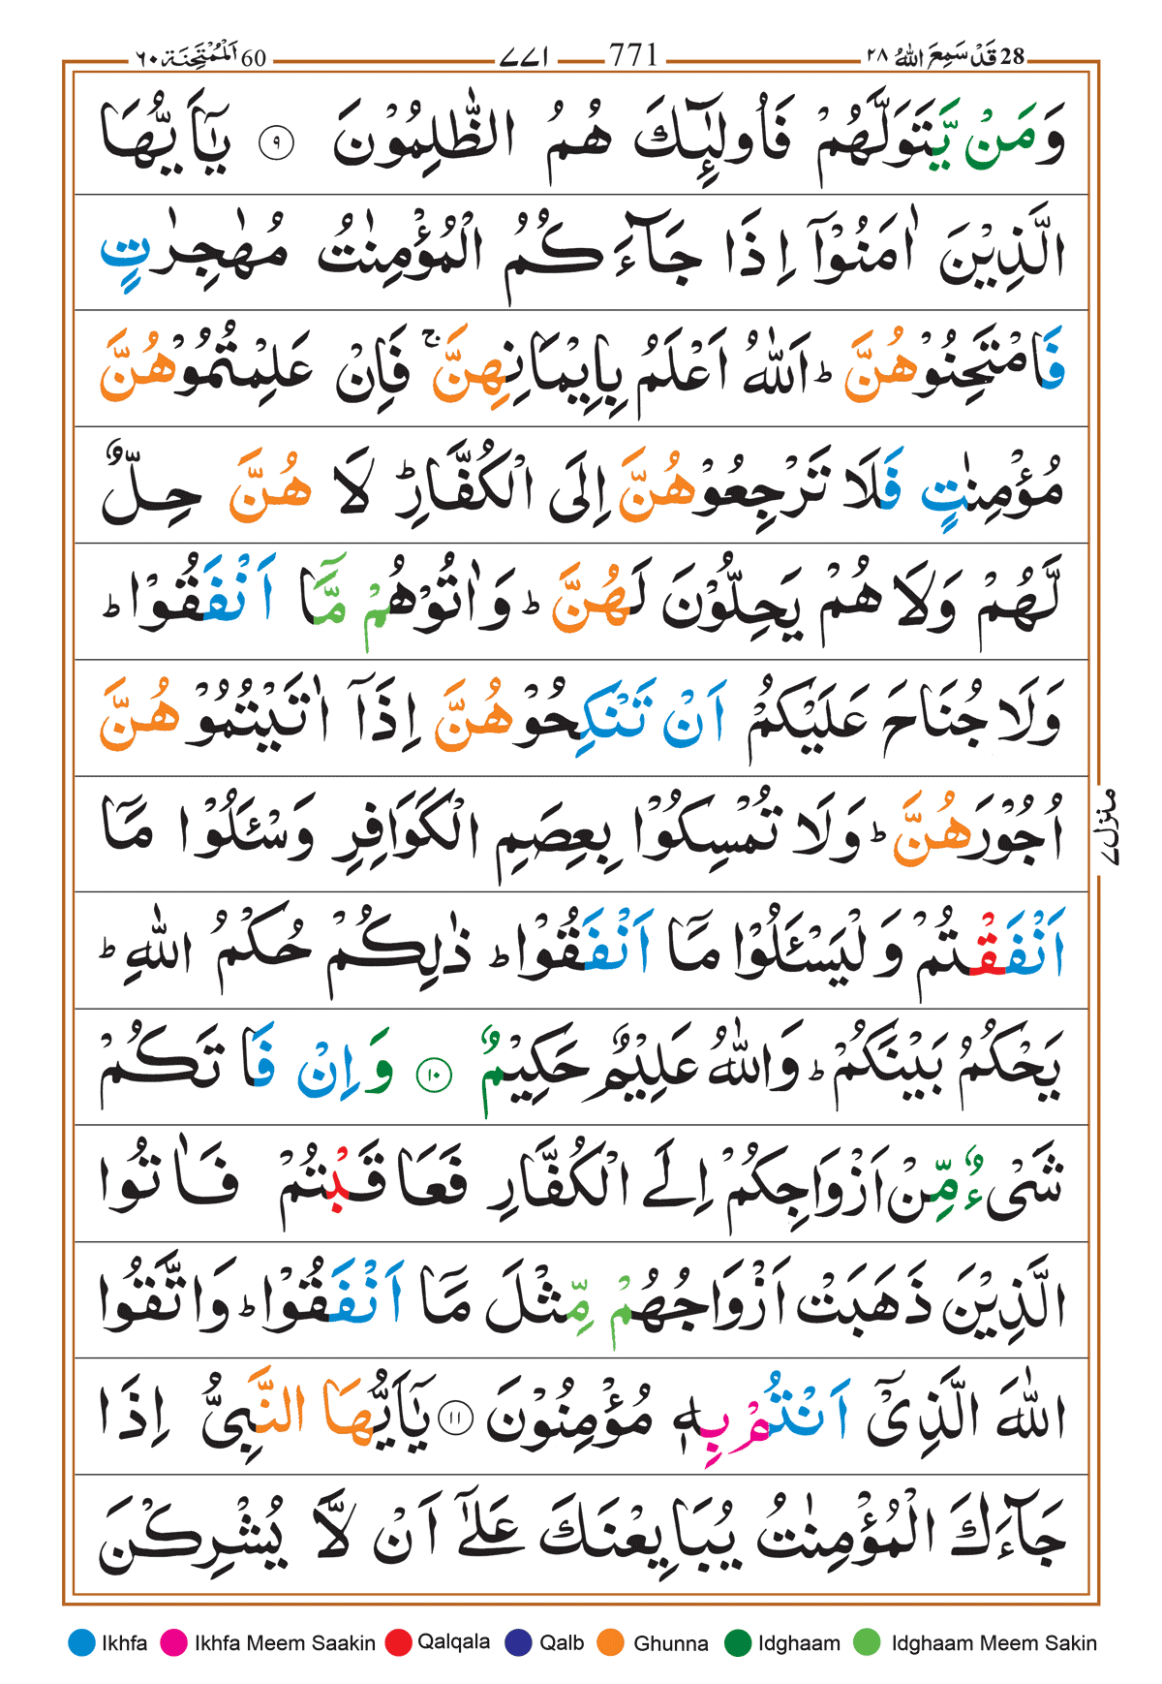 28 قَدْ سَمِعَ اللّٰهُ ٢٨ 771 ٧٧١ 60 اَلْمُمْتَحِنَة ٦٠
وَمَنْ يَّتَوَلَّهُمْ فَاُولٰٓئِكَ هُمُ الظّٰلِمُوْنَ ٩ يٰۤاَيُّهَا
الَّذِيْنَ اٰمَنُوْۤا اِذَا جَآءَكُمُ الْمُؤْمِنٰتُ مُهٰجِرٰتٍ
فَامْتَحِنُوْهُنَّ ؕ اَللّٰهُ اَعْلَمُ بِاِيْمَانِهِنَّ ۚ فَاِنْ عَلِمْتُمُوْهُنَّ
مُؤْمِنٰتٍ فَلَا تَرْجِعُوْهُنَّ اِلَى الْكُفَّارِ ؕ لَا هُنَّ حِلٌّ
لَّهُمْ وَلَا هُمْ يَحِلُّوْنَ لَهُنَّ ؕ وَاٰتُوْهُمْ مَّاۤ اَنْفَقُوْا ؕ
وَلَا جُنَاحَ عَلَيْكُمْ اَنْ تَنْكِحُوْهُنَّ اِذَاۤ اٰتَيْتُمُوْهُنَّ
اُجُوْرَهُنَّ ؕ وَلَا تُمْسِكُوْا بِعِصَمِ الْكَوَافِرِ وَسْـَٔلُوْا مَاۤ
اَنْفَقْتُمْ وَلْيَسْـَٔلُوْا مَاۤ اَنْفَقُوْا ؕ ذٰلِكُمْ حُكْمُ اللّٰهِ ؕ
يَحْكُمُ بَيْنَكُمْ ؕ وَاللّٰهُ عَلِيْمٌ حَكِيْمٌ ١٠ وَاِنْ فَاتَكُمْ
شَىْءٌ مِّنْ اَزْوَاجِكُمْ اِلَى الْكُفَّارِ فَعَاقَبْتُمْ فَاٰتُوا
الَّذِيْنَ ذَهَبَتْ اَزْوَاجُهُمْ مِّثْلَ مَاۤ اَنْفَقُوْا ؕ وَاتَّقُوا
اللّٰهَ الَّذِىْۤ اَنْتُمْ بِهٖ مُؤْمِنُوْنَ ١١ يٰۤاَيُّهَا النَّبِىُّ اِذَا
جَآءَكَ الْمُؤْمِنٰتُ يُبَايِعْنَكَ عَلٰۤى اَنْ لَّا يُشْرِكْنَ
منزل ٧
Ikhfa Ikhfa Meem Saakin Qalqala Qalb Ghunna Idghaam Idghaam Meem Sakin